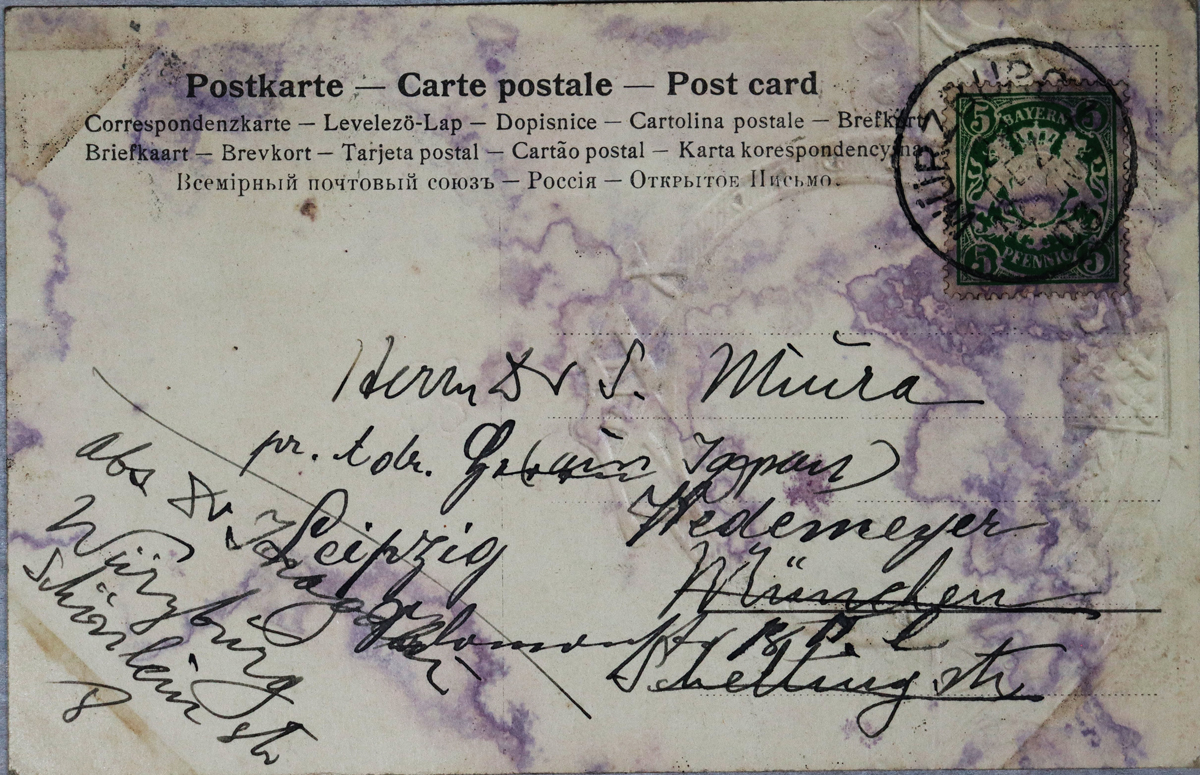 Postkarte — Carte postale — Post card
Correspondenzkarte — Levelező-Lap — Dopisnice — Cartolina postale — Brefkort
Briefkaart — Brevkort — Tarjeta postal — Cartão postal — Karta korespondencyjna
Всемірный почтовый союзъ — Россія — Открытое Письмо.
WÜRZBURG
5 BAYERN 5
5 PFENNIG 5
Herrn Dr S. Miura
pr. Adr. Japan
Wedemeyer
Leipzig
München
Schellingstr
abs Dr
Würzburg
Schönleinstr
8